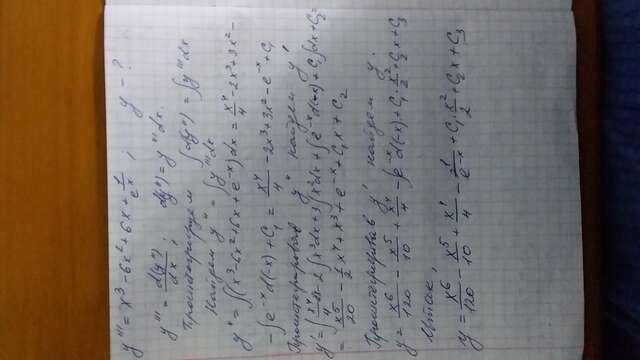 y''' = x³ - 6x² + 6x + 1/eˣ ; y - ?
y''' = d(y'')/dx ; d(y'') = y''' dx.
Проинтегрируем ∫d(y'') = ∫y''' dx
Найдем y'' = ∫y''' dx
y'' = ∫(x³ - 6x² + 6x + e⁻ˣ) dx = x⁴/4 - 2x³ + 3x² -
- ∫e⁻ˣ d(-x) + C₁ = x⁴/4 - 2x³ + 3x² - e⁻ˣ + C₁
Проинтегрировав y'' найдем y'
y' = ∫x⁴/4 dx - 2∫x³dx + 3∫x²dx + ∫e⁻ˣ d(-x) + C₁∫dx + C₂ =
= x⁵/20 - 1/2 x⁴ + x³ + e⁻ˣ + C₁x + C₂
Проинтегрировав y' найдем y.
y = x⁶/120 - x⁵/10 + x⁴/4 - ∫e⁻ˣ d(-x) + C₁·x²/2 + C₂x + C₃
Итак,
y = x⁶/120 - x⁵/10 + x⁴/4 - 1/e⁻ˣ + C₁·x²/2 + C₂x + C₃